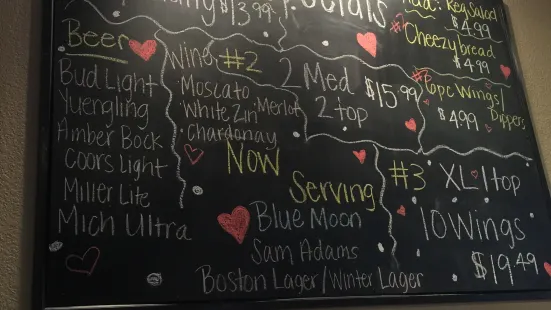 $13.99
Specials
Add: Reg Salad
$4.99
# Cheezybread
$4.99
#6
6pc Wings/
Dippers
$4.99
Beer
Bud Light
Yuengling
Amber Bock
Coors Light
Miller Lite
Mich Ultra
Wine
Moscato
White Zin Merlot
Chardonnay
#2
2 Med
2 top
$15.99
Now
Serving
Blue Moon
Sam Adams
Boston Lager/Winter Lager
#3 XL 1 top
10 Wings
$19.49